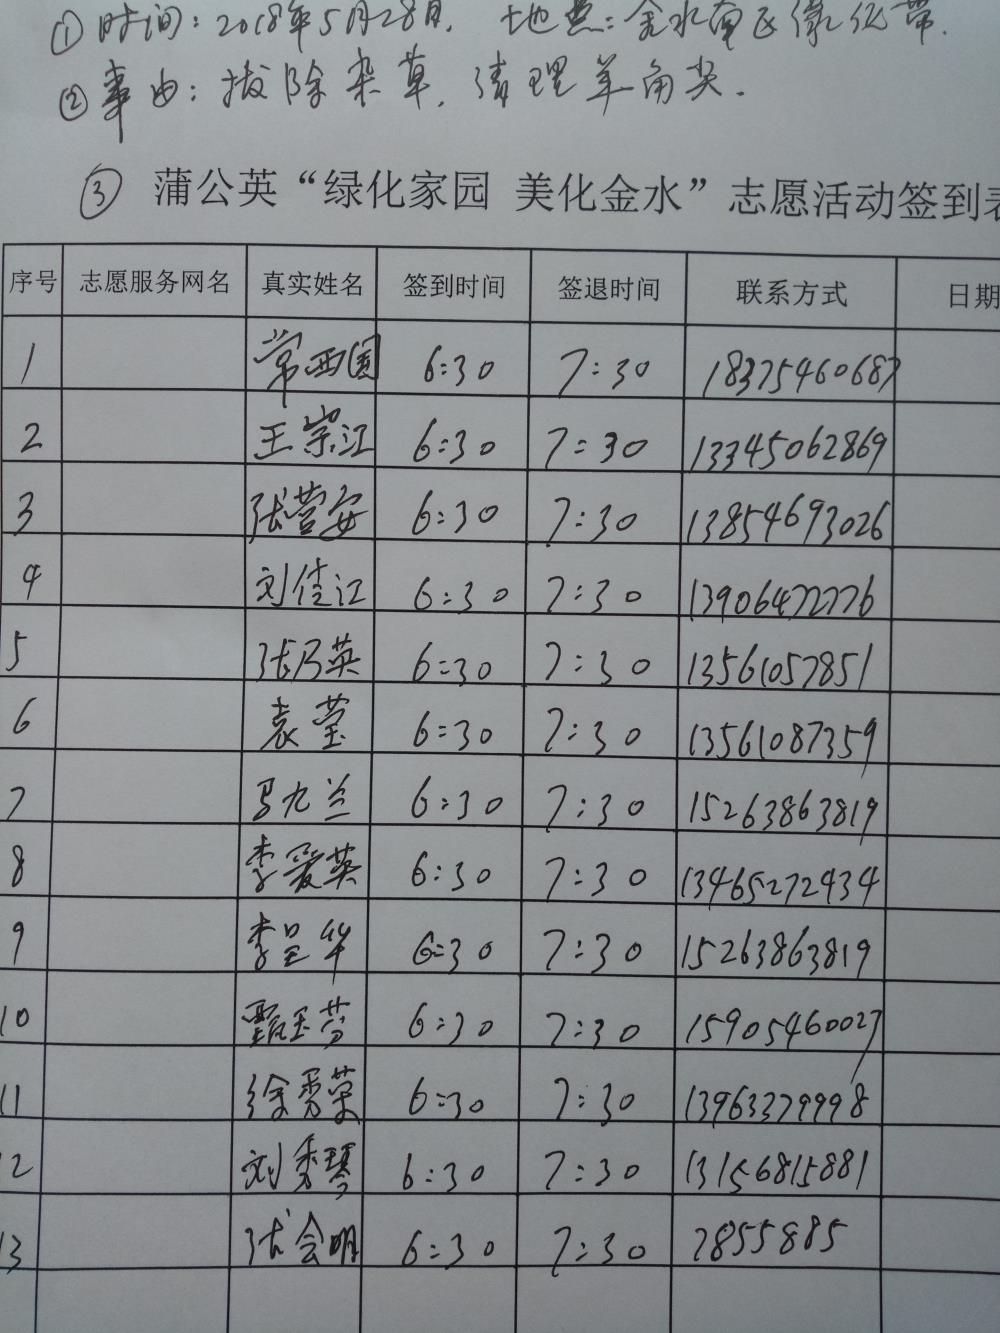 ①时间：2018年5月28日. 地点：金水南区绿化带.
②事由：拔除杂草，清理羊角尖.
③ 蒲公英“绿化家园 美化金水”志愿活动签到表
序号 志愿服务网名 真实姓名 签到时间 签退时间 联系方式 日期
1 常西国 6:30 7:30 18375460687
2 王宗江 6:30 7:30 13345062869
3 张营安 6:30 7:30 13854693026
4 刘佳江 6:30 7:30 13906472776
5 张乃英 6:30 7:30 13561057851
6 袁莹 6:30 7:30 13561087359
7 马九兰 6:30 7:30 15263863819
8 李爱英 6:30 7:30 13465272434
9 李呈华 6:30 7:30 15263863819
10 甄玉芬 6:30 7:30 15905460027
11 徐秀荣 6:30 7:30 13963379998
12 刘秀琴 6:30 7:30 13156815881
13 张会明 6:30 7:30 7855885